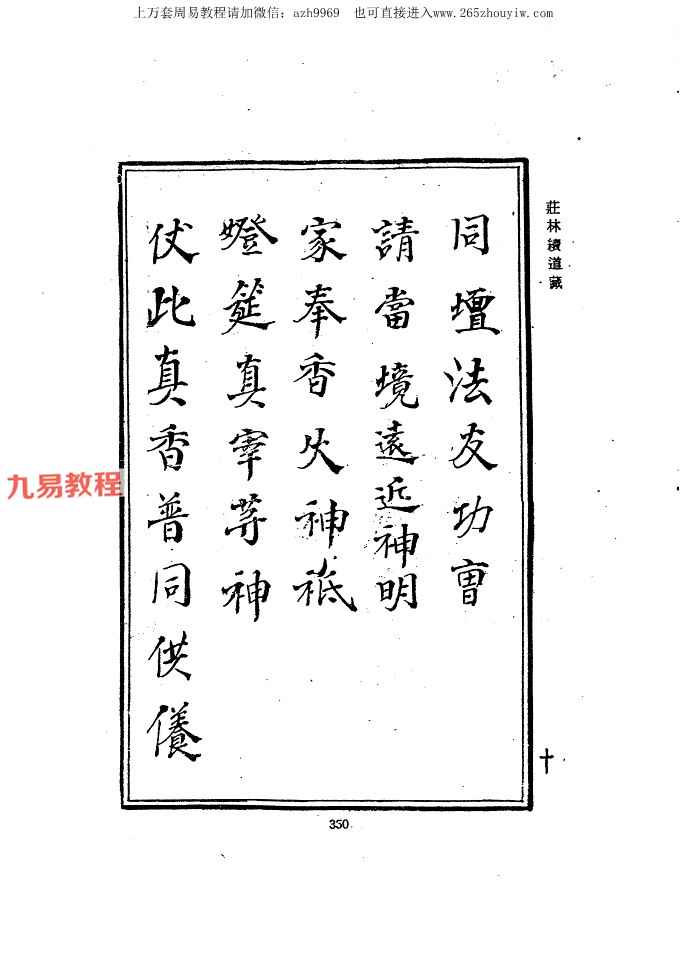 上万套周易教程请加微信：azh9969 也可直接进入www.265zhouyiw.com
莊林續道藏
同壇法友功曺
請當境遠近神明
家奉香火神祇
燈筵真宰等神
伏此真香普同供養
九易教程
十
350